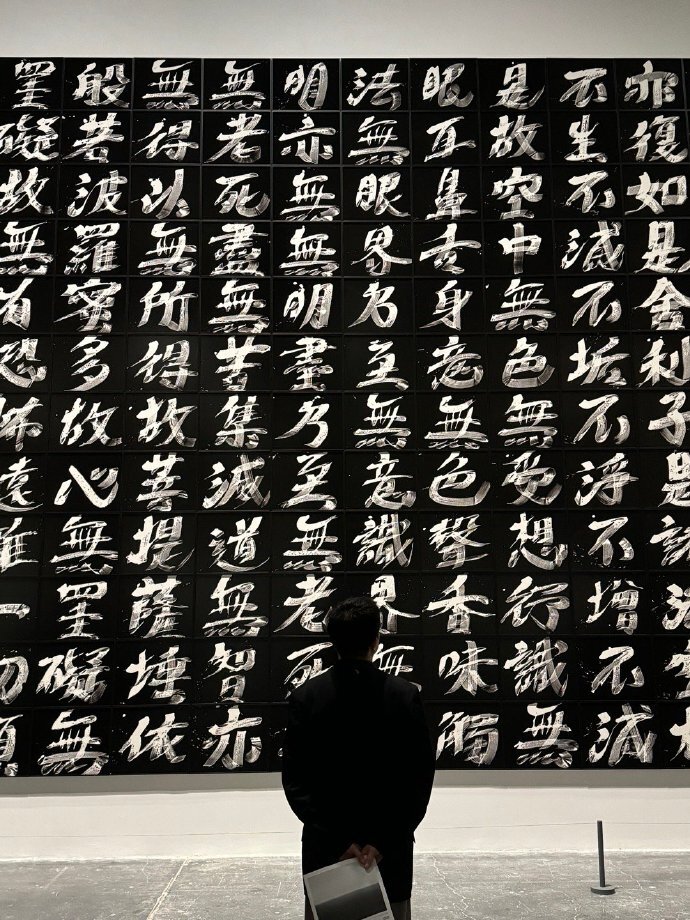 亦復如是舍利子是諸法
不生不滅不垢不浄不增不減
是故空中無色無受想行識無
眼耳鼻舌身意無色聲香味觸
法無眼界乃至無意識界無
明亦無無明盡乃至無老死
無老死盡無苦集滅道無智亦
無得以無所得故菩提薩埵依
般若波羅蜜多故心無罣礙無
罣礙故無有恐怖遠離一切顛